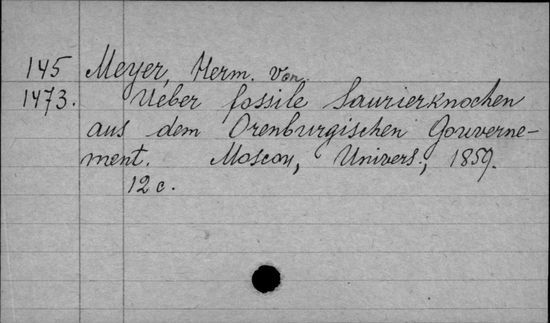 145 Meyer, Herm. von.
1473. Ueber fossile Saurierknochen
aus dem Orenburgischen Gouverne-
ment. Moscou, Univers., 1859.
12 c.